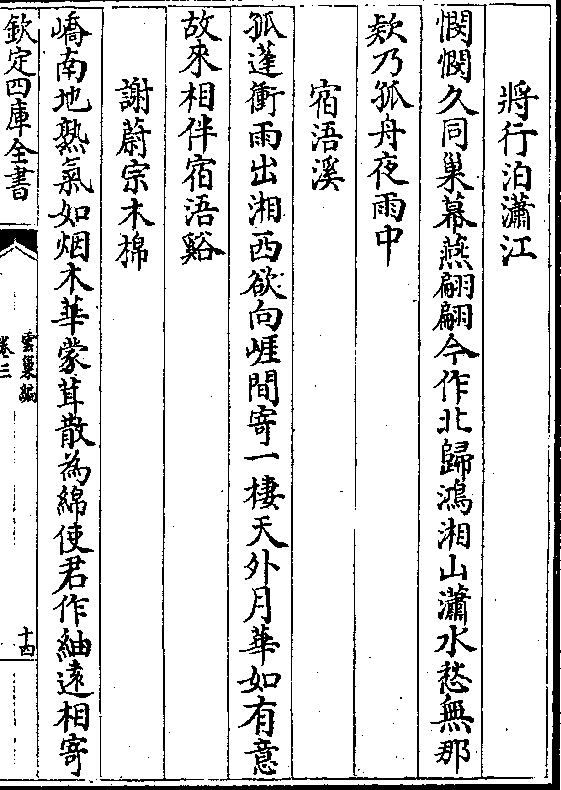 將行泊瀟江
憫憫久同巢幕燕翩翩今作北歸鴻湘山瀟水愁無那
欸乃孤舟夜雨中
宿浯溪
孤蓬衝雨出湘西欲向崕間寄一棲天外月華如有意
故來相伴宿浯谿
謝蔚宗木棉
嶠南地熟氣如烟木華蒙茸散為綿使君作紬遠相寄
欽定四庫全書
雲巢編
卷三
十四